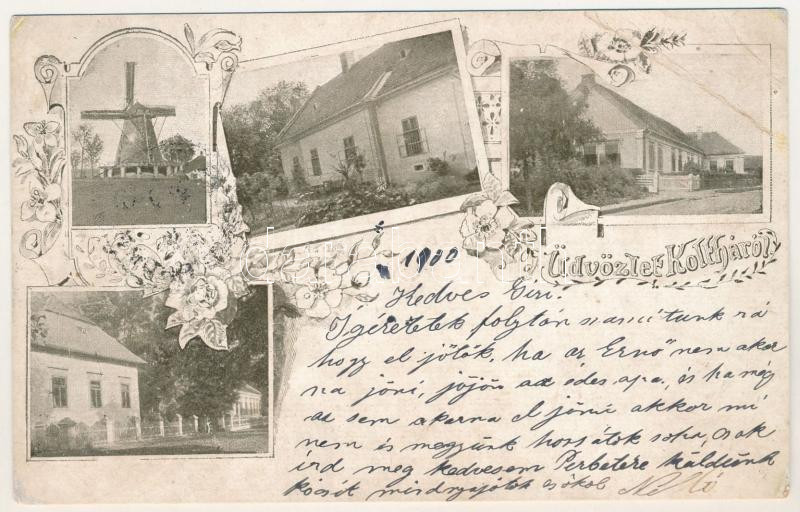 Üdvözlet Koltháról
1900
Kedves Giri.
Igéretetek folytán számítunk rá
hogy el jötök, ha az Ernő nem akar
na jőni, jöjön az édes apa, és ha még
az sem akarna el jőni akkor mi
nem is megyünk hozzátok soha, csak
ird meg kedvesem Perbetére küldünk
kocsit mindnyájotok csókol